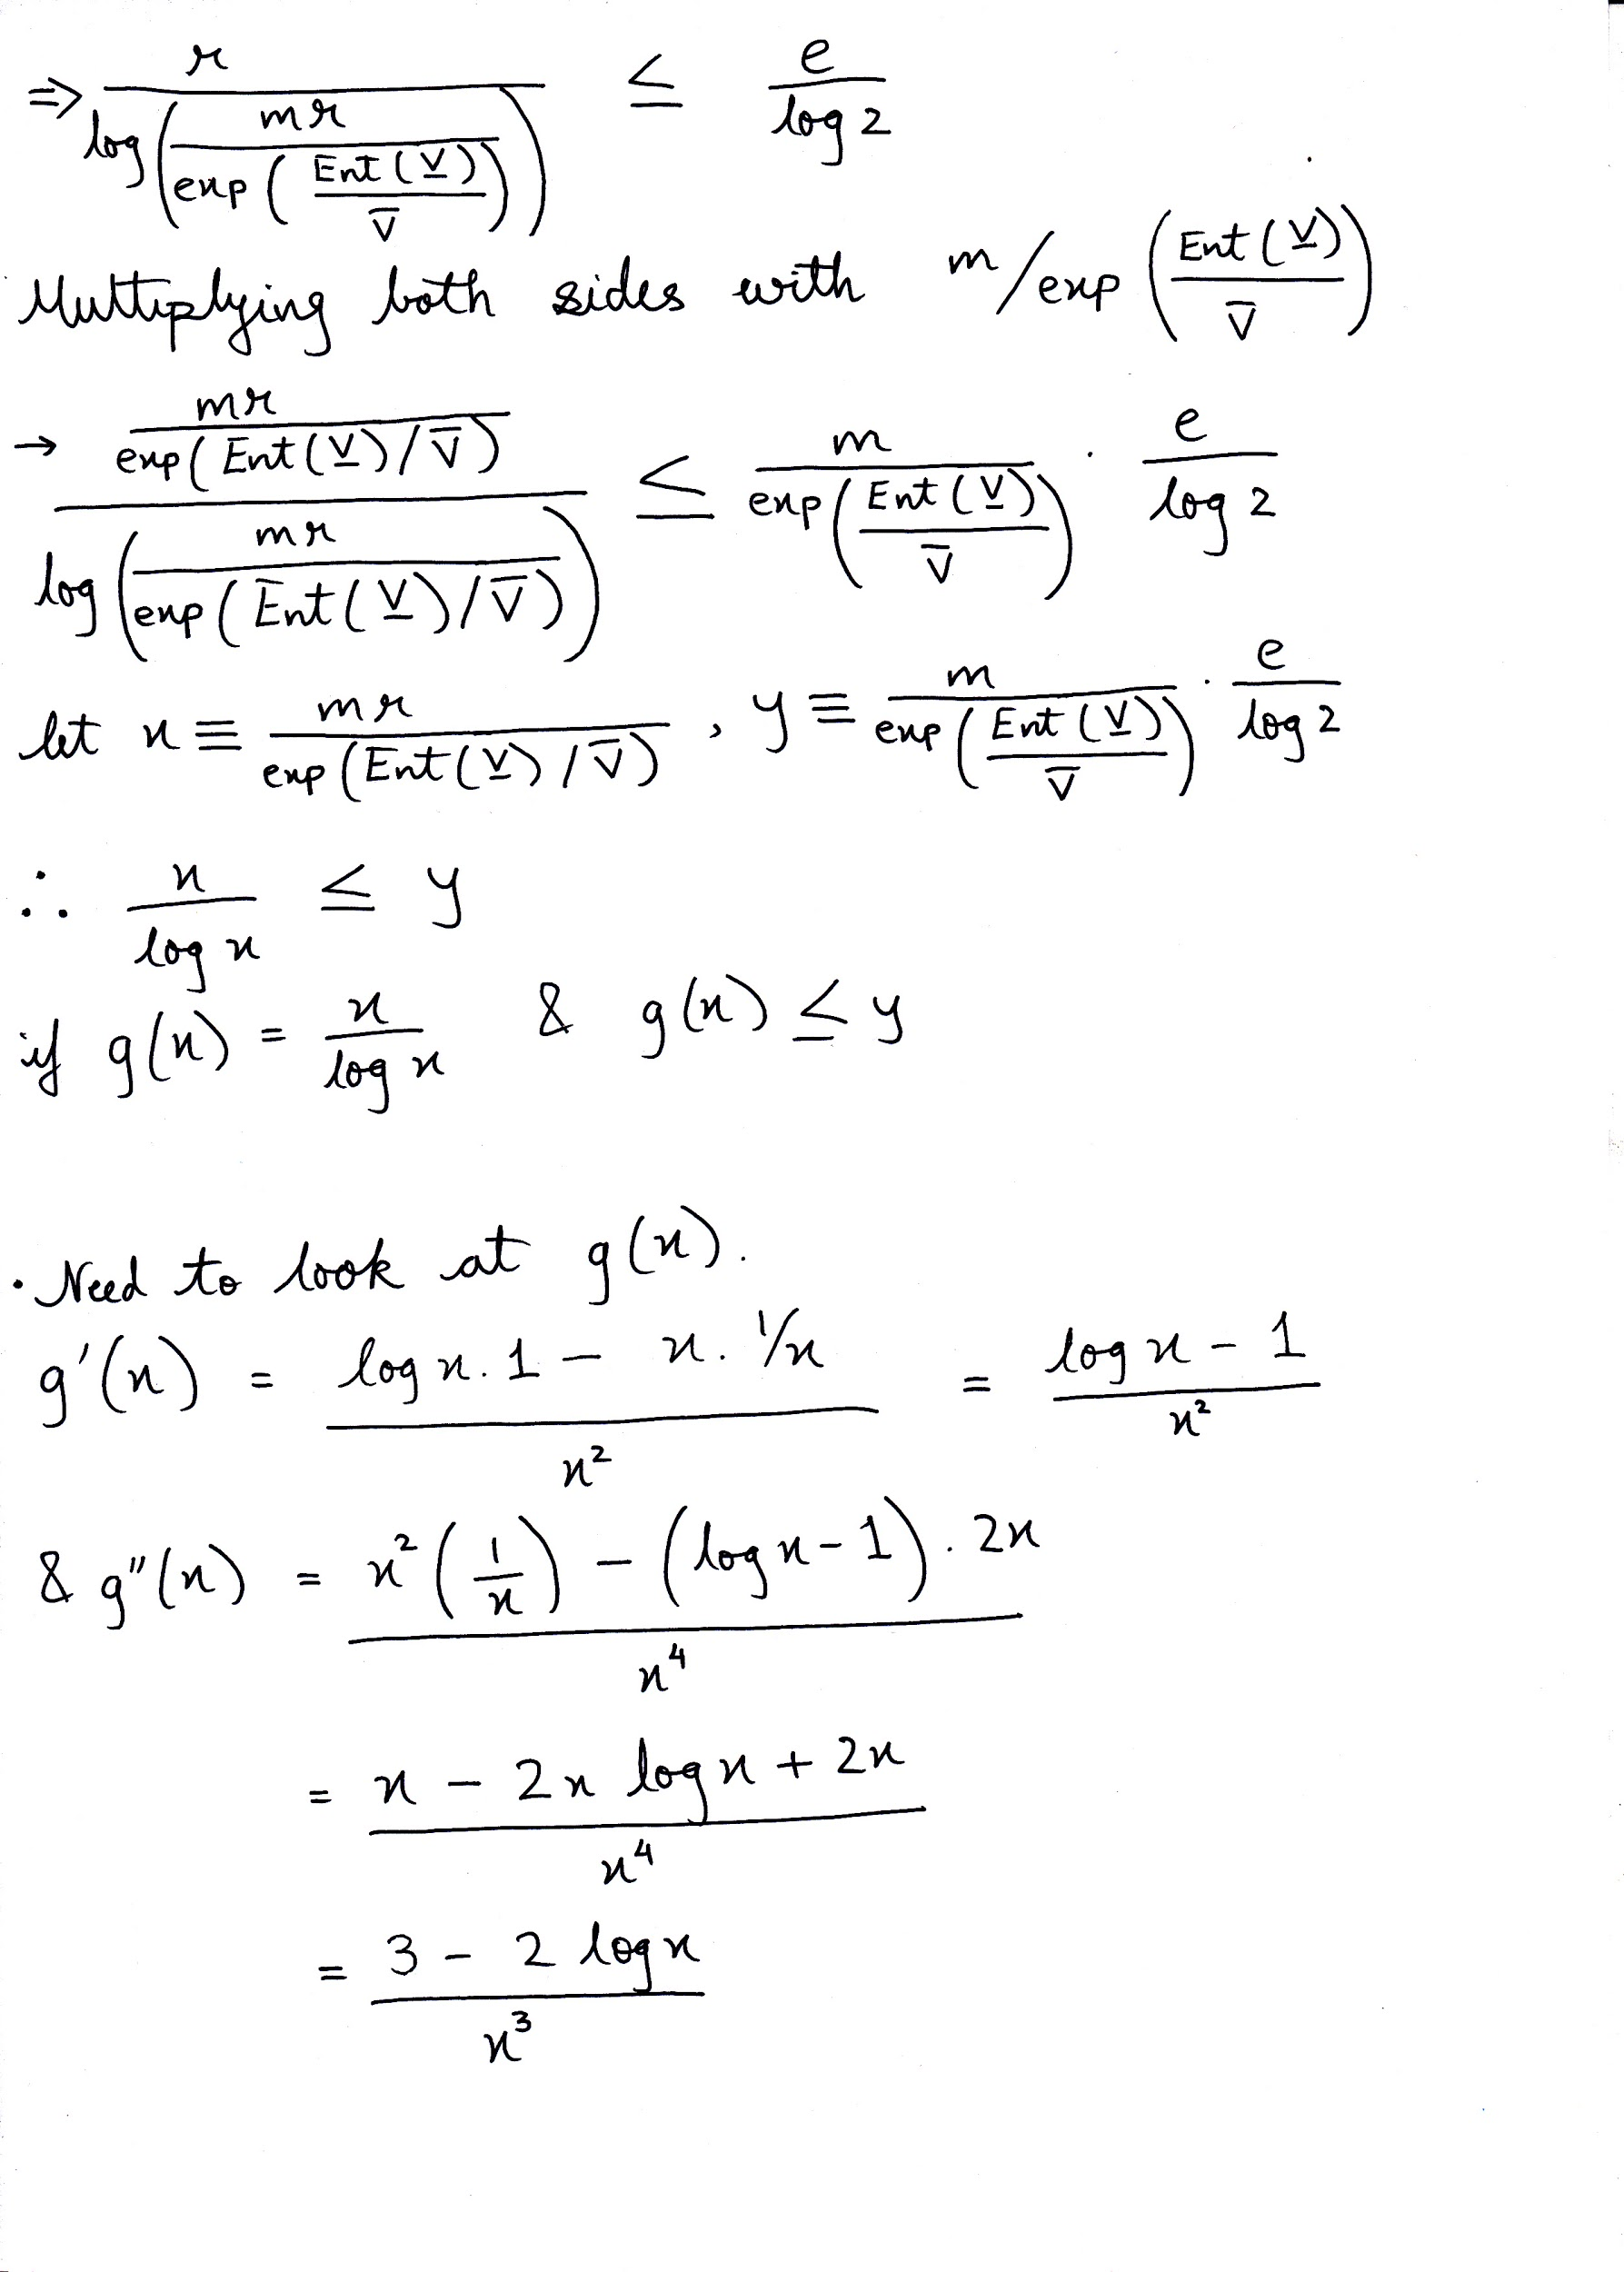 ⇒ r / log( mr / exp( Ent(V̲) / V̄ ) ) ≤ e / log 2
Multiplying both sides with m / exp( Ent(V̲) / V̄ )
→ ( mr / exp( Ent(V̲) / V̄ ) ) / log( mr / exp( Ent(V̲) / V̄ ) ) ≤ m / exp( Ent(V̲) / V̄ ) · e / log 2
let x ≡ mr / exp( Ent(V̲) / V̄ ) , y ≡ m / exp( Ent(V̲) / V̄ ) · e / log 2
∴ x / log x ≤ y
if g(x) = x / log x & g(x) ≤ y
· Need to look at g(x).
g'(x) = ( log x . 1 − x . 1/x ) / x² = ( log x − 1 ) / x²
& g''(x) = ( x² ( 1 / x ) − ( log x − 1 ) . 2x ) / x⁴
= ( x − 2x log x + 2x ) / x⁴
= ( 3 − 2 log x ) / x³